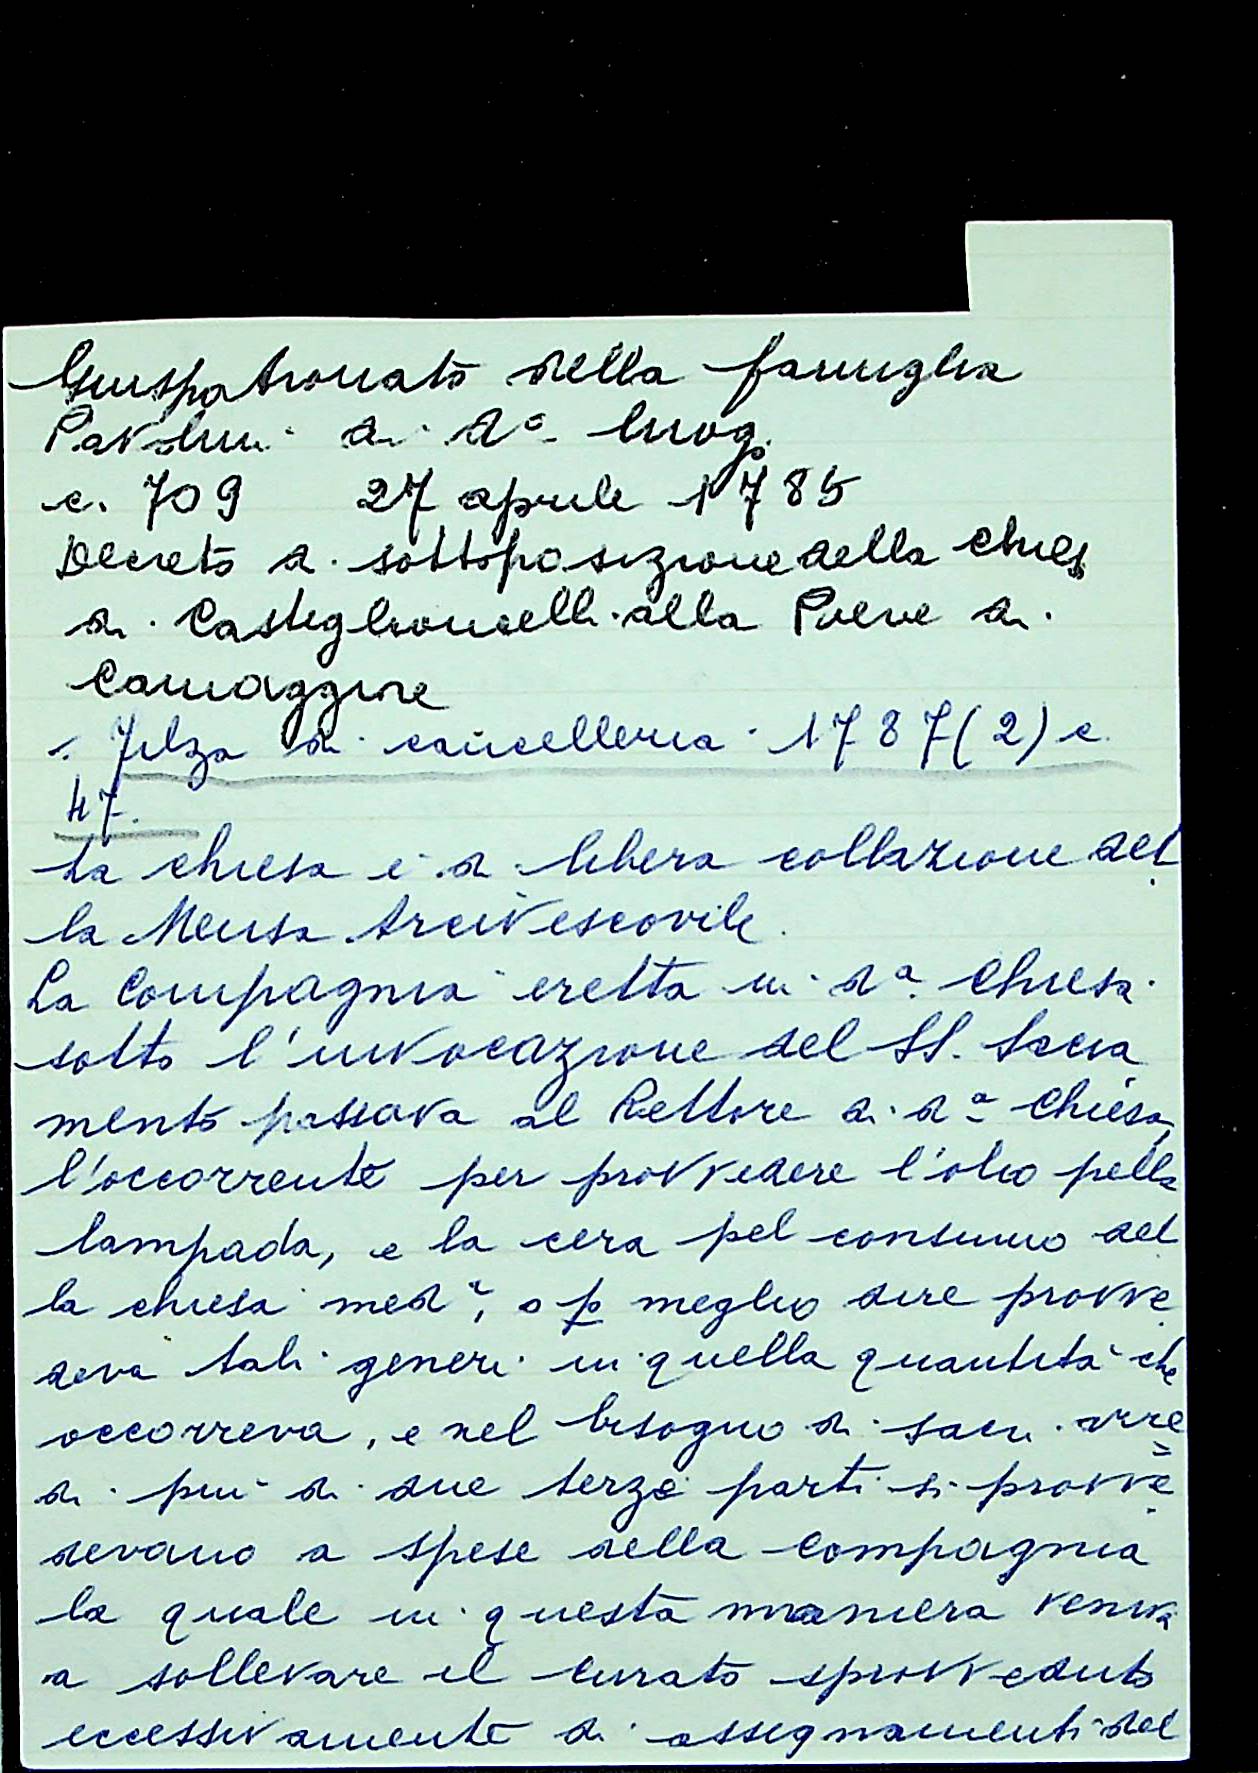 Giuspatronato della famiglia
Pavolini di d.º luog.
c. 709 27 aprile 1785
Decreto di sottoposizione della chies
di Castiglioncelli alla Pieve di
Camaggiore
Filza di cancelleria 1787(2) c.
47.
La chiesa è di libera collazione del
la Mensa Arcivescovile.
La Compagnia eretta in d.ª Chiesa
sotto l'invocazione del SS. Sacra
mento passava al Rettore di d.ª Chiesa
l'occorrente per provvedere l'olio pella
lampada, e la cera pel consumo del
la chiesa med.ª, o p meglio dire provve
deva tali generi in quella quantità che
occorreva, e nel bisogno di sacri arre
di più di due terze parti si provve
devano a spese della Compagnia
la quale in questa maniera veniva
a sollevare il curato sprovveduto
eccessivamente di assegnamenti del